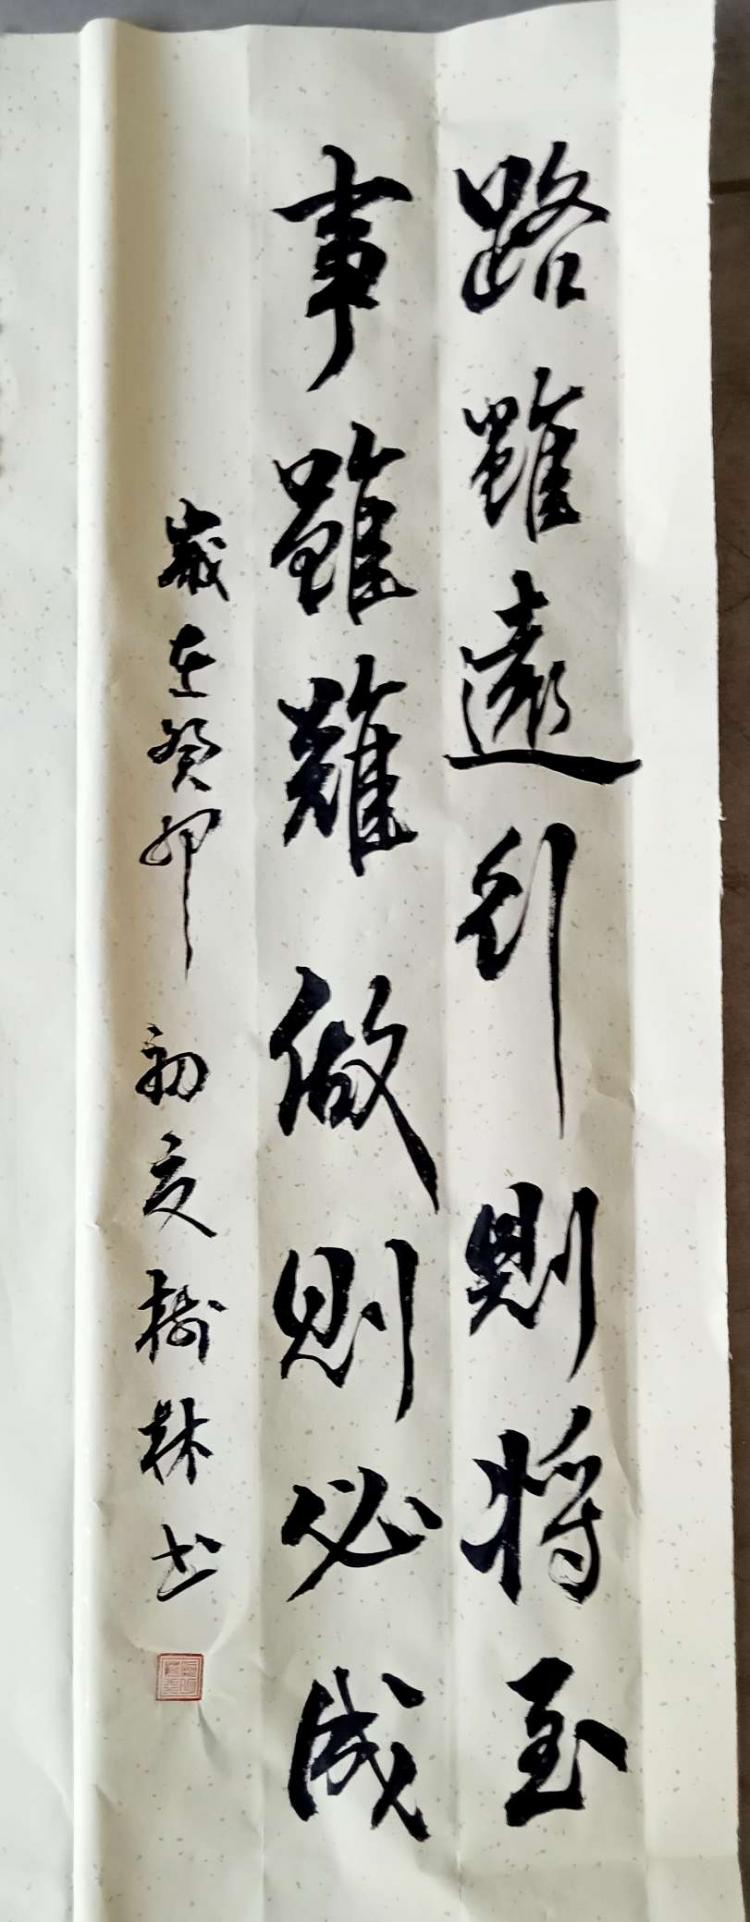 路雖遠到則將至
事雖難做則必成
歲在癸卯初夏樹林书